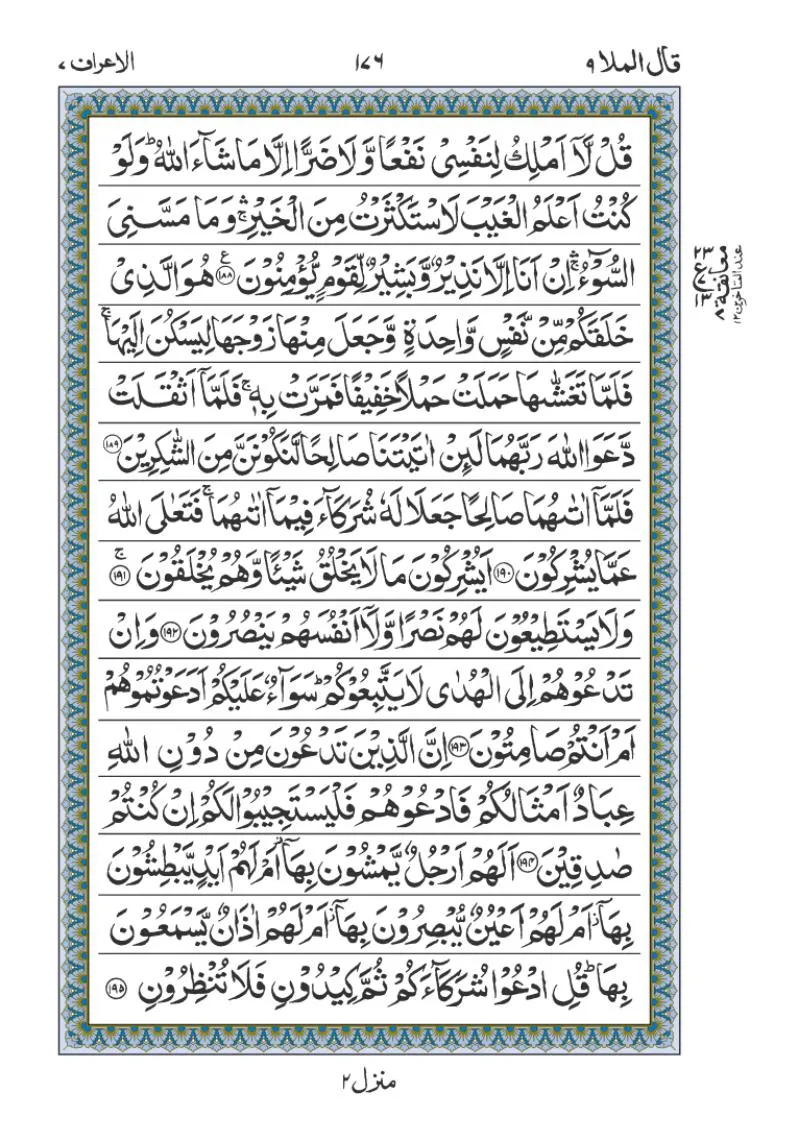 قال الملا ۹ ۱۷۶ الاعراف ۷
قُلْ لَّاۤ اَمْلِكُ لِنَفْسِیْ نَفْعًا وَّلَا ضَرًّا اِلَّا مَا شَآءَ اللّٰهُؕ وَلَوْ
كُنْتُ اَعْلَمُ الْغَیْبَ لَاسْتَكْثَرْتُ مِنَ الْخَیْرِۛۚ وَمَا مَسَّنِیَ
السُّوْٓءُۛۚ اِنْ اَنَا اِلَّا نَذِیْرٌ وَّبَشِیْرٌ لِّقَوْمٍ یُّؤْمِنُوْنَ ۱۸۸ ع هُوَ الَّذِیْ
خَلَقَكُمْ مِّنْ نَّفْسٍ وَّاحِدَةٍ وَّجَعَلَ مِنْهَا زَوْجَهَا لِیَسْكُنَ اِلَیْهَاۚ
فَلَمَّا تَغَشّٰىهَا حَمَلَتْ حَمْلًا خَفِیْفًا فَمَرَّتْ بِهٖۚ فَلَمَّاۤ اَثْقَلَتْ
دَّعَوَا اللّٰهَ رَبَّهُمَا لَىِٕنْ اٰتَیْتَنَا صَالِحًا لَّنَكُوْنَنَّ مِنَ الشّٰكِرِیْنَ ۱۸۹
فَلَمَّاۤ اٰتٰىهُمَا صَالِحًا جَعَلَا لَهٗ شُرَكَآءَ فِیْمَاۤ اٰتٰىهُمَاۚ فَتَعٰلَی اللّٰهُ
عَمَّا یُشْرِكُوْنَ ۱۹۰ اَیُشْرِكُوْنَ مَا لَا یَخْلُقُ شَیْئًا وَّهُمْ یُخْلَقُوْنَ ۱۹۱ ۚ
وَلَا یَسْتَطِیْعُوْنَ لَهُمْ نَصْرًا وَّلَاۤ اَنْفُسَهُمْ یَنْصُرُوْنَ ۱۹۲ وَاِنْ
تَدْعُوْهُمْ اِلَی الْهُدٰی لَا یَتَّبِعُوْكُمْؕ سَوَآءٌ عَلَیْكُمْ اَدَعَوْتُمُوْهُمْ
اَمْ اَنْتُمْ صَامِتُوْنَ ۱۹۳ اِنَّ الَّذِیْنَ تَدْعُوْنَ مِنْ دُوْنِ اللّٰهِ
عِبَادٌ اَمْثَالُكُمْ فَادْعُوْهُمْ فَلْیَسْتَجِیْبُوْا لَكُمْ اِنْ كُنْتُمْ
صٰدِقِیْنَ ۱۹۴ اَلَهُمْ اَرْجُلٌ یَّمْشُوْنَ بِهَاۤؗ اَمْ لَهُمْ اَیْدٍ یَّبْطِشُوْنَ
بِهَاۤؗ اَمْ لَهُمْ اَعْیُنٌ یُّبْصِرُوْنَ بِهَاۤؗ اَمْ لَهُمْ اٰذَانٌ یَّسْمَعُوْنَ
بِهَاؕ قُلِ ادْعُوْا شُرَكَآءَكُمْ ثُمَّ كِیْدُوْنِ فَلَا تُنْظِرُوْنِ ۱۹۵
معانقة ۸
عند المتاخرین ۱۲
منزل ۲